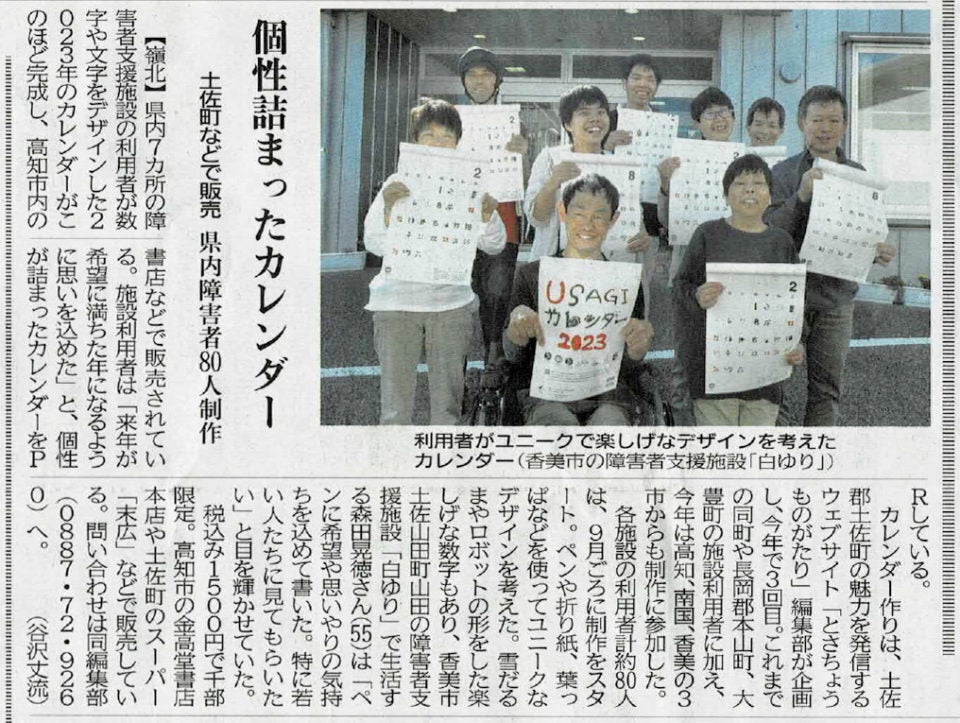 個性詰まったカレンダー
土佐町などで販売 県内障害者80人制作
【嶺北】県内7カ所の障
害者支援施設の利用者が数
字や文字をデザインした2
023年のカレンダーがこ
のほど完成し、高知市内の
書店などで販売されてい
る。施設利用者は「来年が
希望に満ちた年になるよう
に思いを込めた」と、個性
が詰まったカレンダーをP
Rしている。
カレンダー作りは、土佐
郡土佐町の魅力を発信する
ウェブサイト「とさちょう
ものがたり」編集部が企画
し、今年で3回目。これまで
の同町や長岡郡本山町、大
豊町の施設利用者に加え、
今年は高知、南国、香美の3
市からも制作に参加した。
各施設の利用者計約80人
は、9月ごろに制作をスタ
ート。ペンや折り紙、葉っ
ぱなどを使ってユニークな
デザインを考えた。雪だる
まやロボットの形をした楽
しげな数字もあり、香美市
土佐山田町山田の障害者支
援施設「白ゆり」で生活す
る森田晃徳さん(55)は「ペ
ンに希望や思いやりの気持
ちを込めて書いた。特に若
い人たちに見てもらいた
い」と目を輝かせていた。
税込み1500円で千部
限定。高知市の金高堂書店
本店や土佐町のスーパー
「末広」などで販売してい
る。問い合わせは同編集部
(0887・72・926
0)へ。 (谷沢丈流)
USAGI
カレンダー
2023
2
8
2
8
2
利用者がユニークで楽しげなデザインを考えた
カレンダー(香美市の障害者支援施設「白ゆり」)